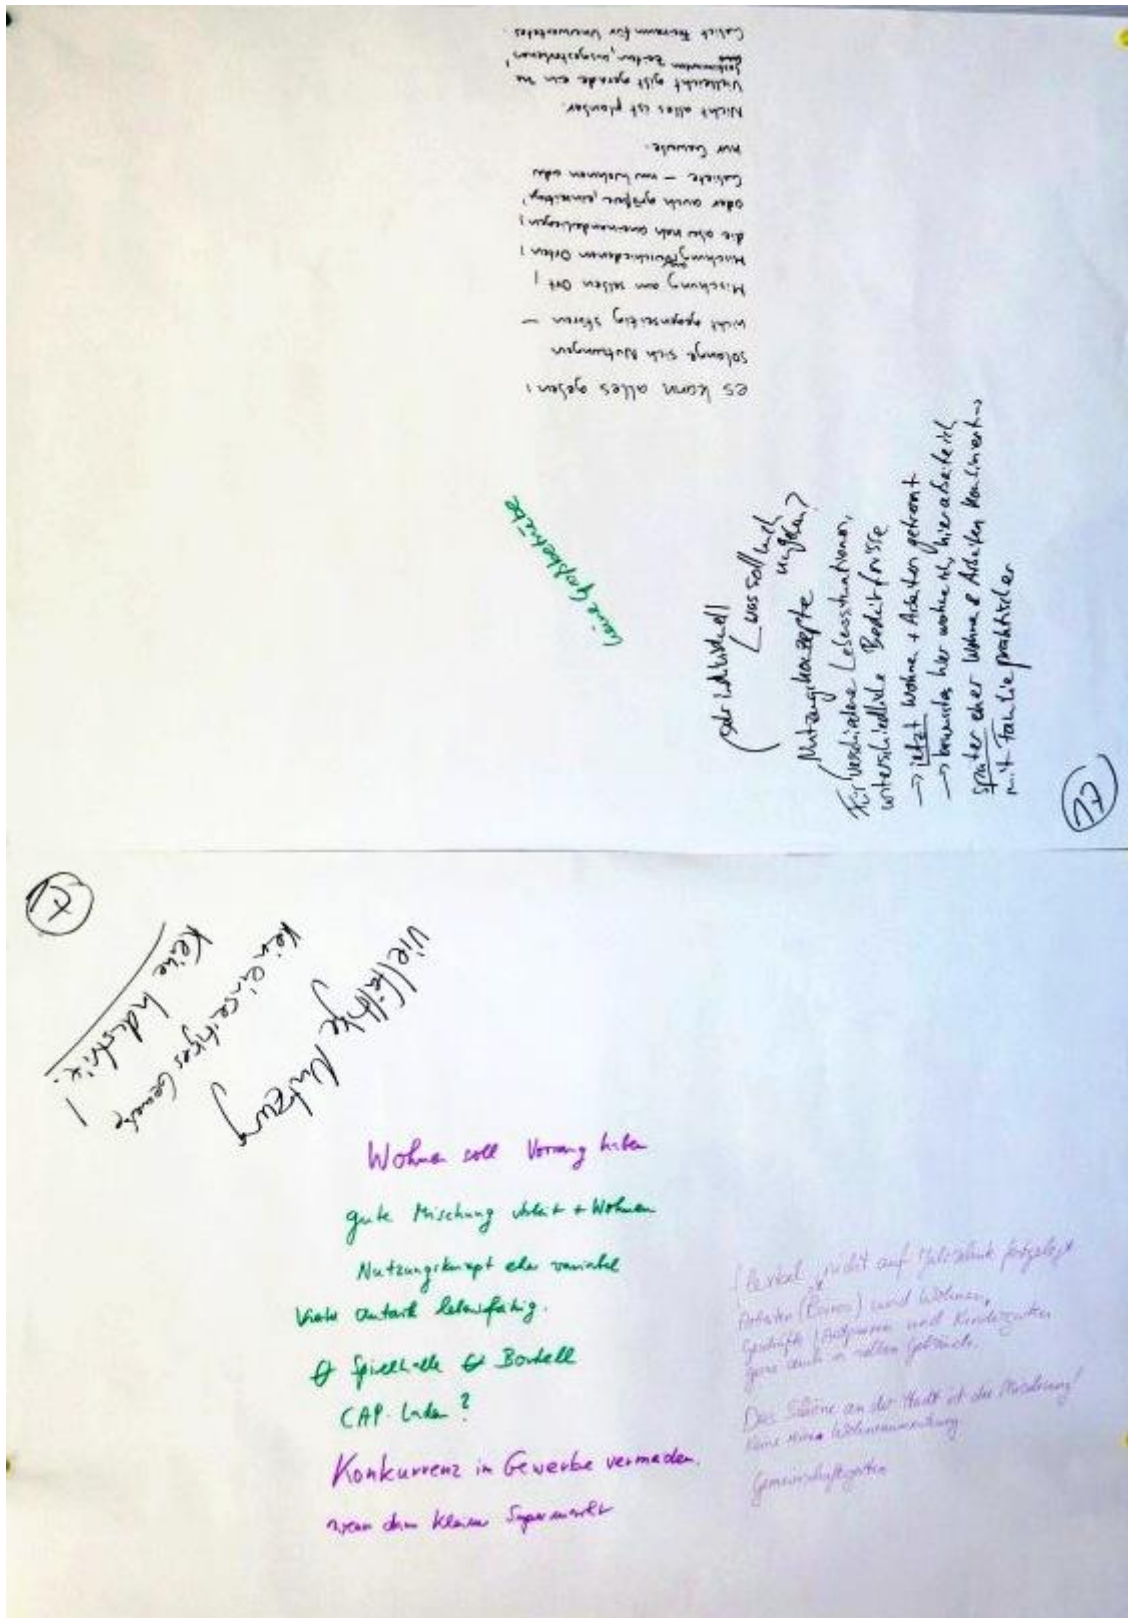 es kann alles geben,
solange sich Nutzungen
nicht gegenseitig stören –
Mischung am selben Ort,
Mischung an verschiedenen Orten,
die aber nah aneinanderliegen,
oder auch größere, einseitige,
Gebiete – nur Wohnen oder
nur Gewerbe.
Nicht alles ist planbar.
Vielleicht gibt gerade ein zu
bestimmten Zeiten „ausgestorbenes"
Gebiet Freiraum für Unerwartetes.
keine Großbetriebe
sehr individuell
was soll ich
Nutzungskonzepte
Für verschiedene Lebenssituationen,
unterschiedliche Bedürfnisse
→ jetzt Wohne + Arbeiten getrennt
→ bewusstes hier wohne ich, hier arbeite ich
später eher Wohne & Arbeiten kombiniert
mit Familie praktischer
17
Keine Industrie!
Kein einseitiges Gewerbe
Vielfältige Nutzung
Wohnen soll Vorrang haben
gute Mischung Arbeit + Wohnen
Nutzungskonzept eher variabel
autark lebensfähig.
Spielhalle Bordell
CAP-Laden?
Konkurrenz in Gewerbe vermeiden.
wenn dann kleiner Supermarkt
flexibel, nicht auf Jahrzehnte festgelegt
Arbeiten (Büros) und Wohnen,
Geschäfte, Arztpraxen und Kindergarten
gern auch in selben Gebäude.
Das Schöne an der Stadt ist die Mischung!
Keine reine Wohnraumnutzung
Gemeinschaftsgarten